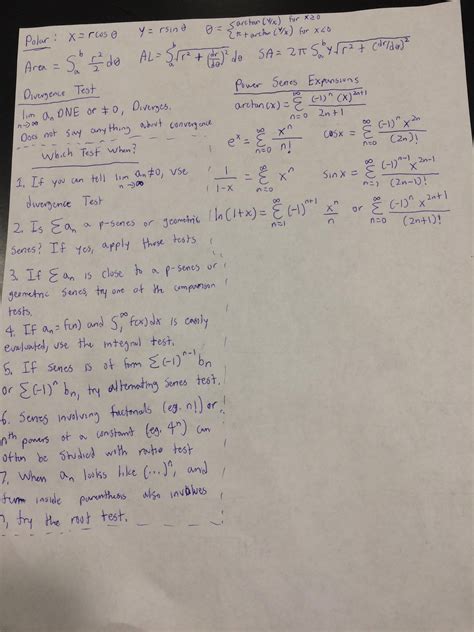 Polar: x=rcosθ y=rsinθ θ= {arctan(y/x) for x≥0
{π+arctan(y/x) for x<0
Area = ∫ₐᵇ r²/2 dθ AL= ∫ₐᵇ √(r² + (dr/dθ)²) dθ SA= 2π ∫ₐᵇ y√(r² + (dr/dθ)²)
Divergence Test
lim n→∞ aₙ DNE or ≠0, Diverges.
Does not say anything about convergence
Which Test When?
1. If you can tell lim n→∞ aₙ≠0, use
divergence Test
2. Is Σaₙ a p-series or geometric
series? If yes, apply those tests
3. If Σaₙ is close to a p-series or
geometric series, try one of the comparison
tests.
4. If aₙ=f(n) and ∫₁^∞ f(x)dx is easily
evaluated, use the integral test.
5. If series is of form Σ(-1)ⁿ⁻¹ bₙ
or Σ(-1)ⁿ bₙ, try alternating series test.
6. Series involving factorials (eg. n!) or
nth powers of a constant (eg. 4ⁿ) can
often be studied with ratio test
7. When aₙ looks like (...)ⁿ, and
term inside parenthesis also involves
n, try the root test.
Power Series Expansions
arctan(x) = Σ n=0 ∞ (-1)ⁿ(x)²ⁿ⁺¹ / 2n+1
eˣ = Σ n=0 ∞ xⁿ/n! cosx = Σ n=0 ∞ (-1)ⁿ x²ⁿ / (2n)!
1/(1-x) = Σ n=0 ∞ xⁿ sinx = Σ n=1 ∞ (-1)ⁿ⁻¹ x²ⁿ⁻¹ / (2n-1)!
ln(1+x) = Σ n=1 ∞ (-1)ⁿ⁺¹ xⁿ/n or Σ n=0 ∞ (-1)ⁿ x²ⁿ⁺¹ / (2n+1)!